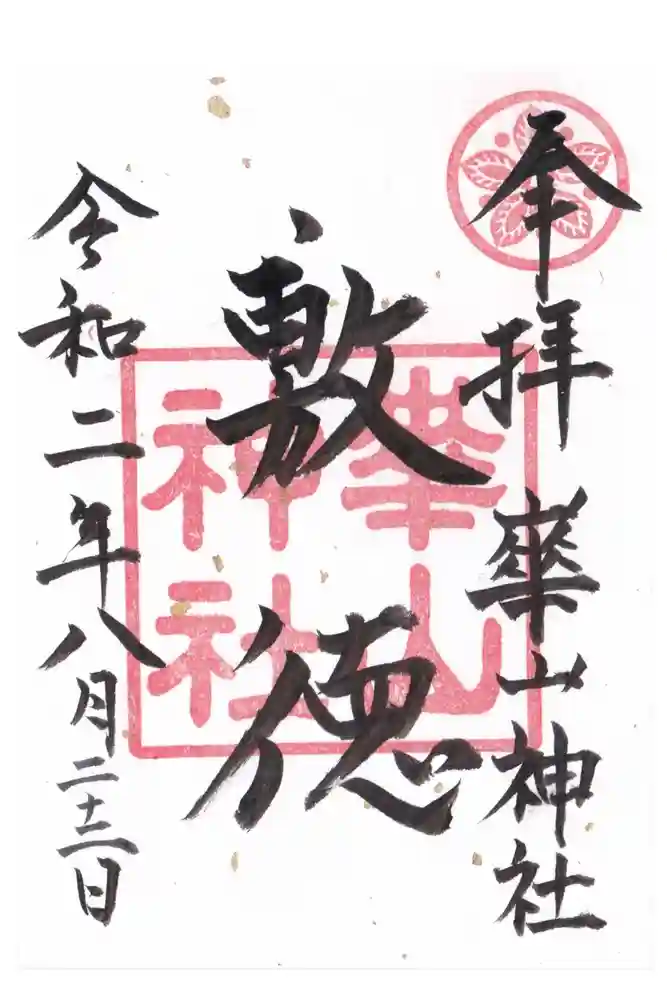 奉拝 崋山神社
敷徳
令和二年八月二十三日
崋山
神社